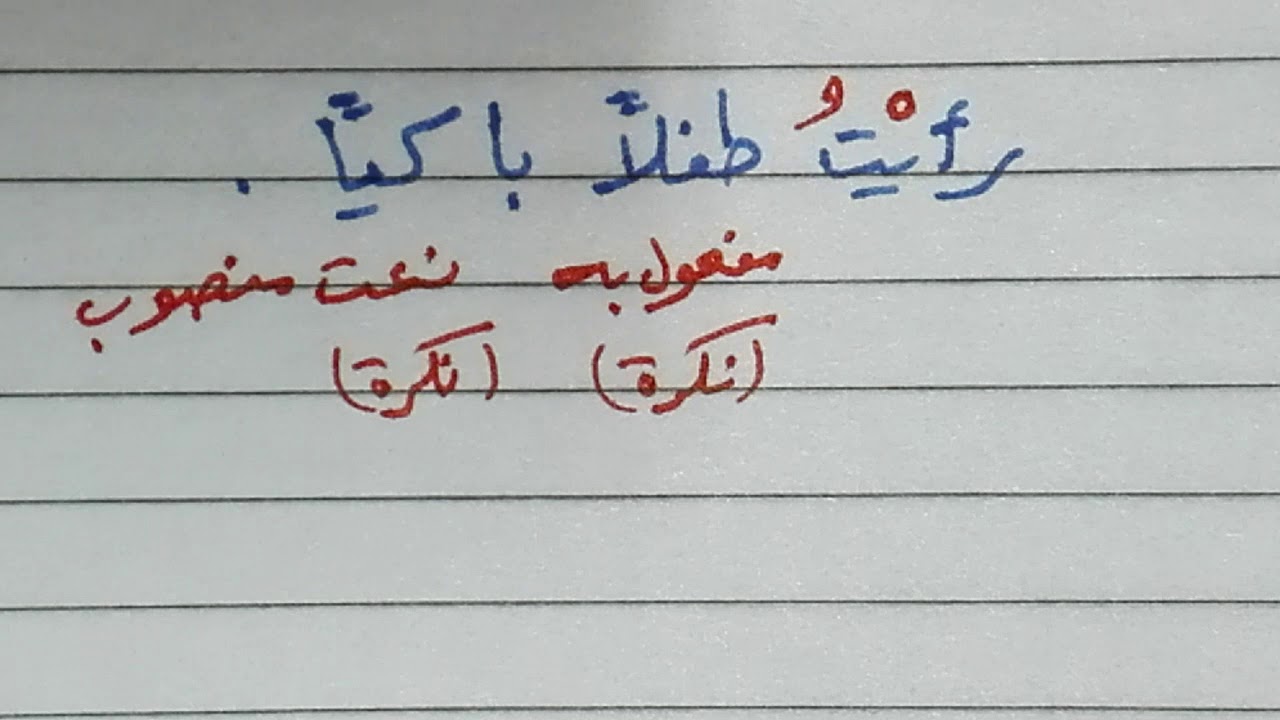 رأيْتُ طفلاً باكياً .
مفعول به نعت منصوب
(نكرة) (نكرة)